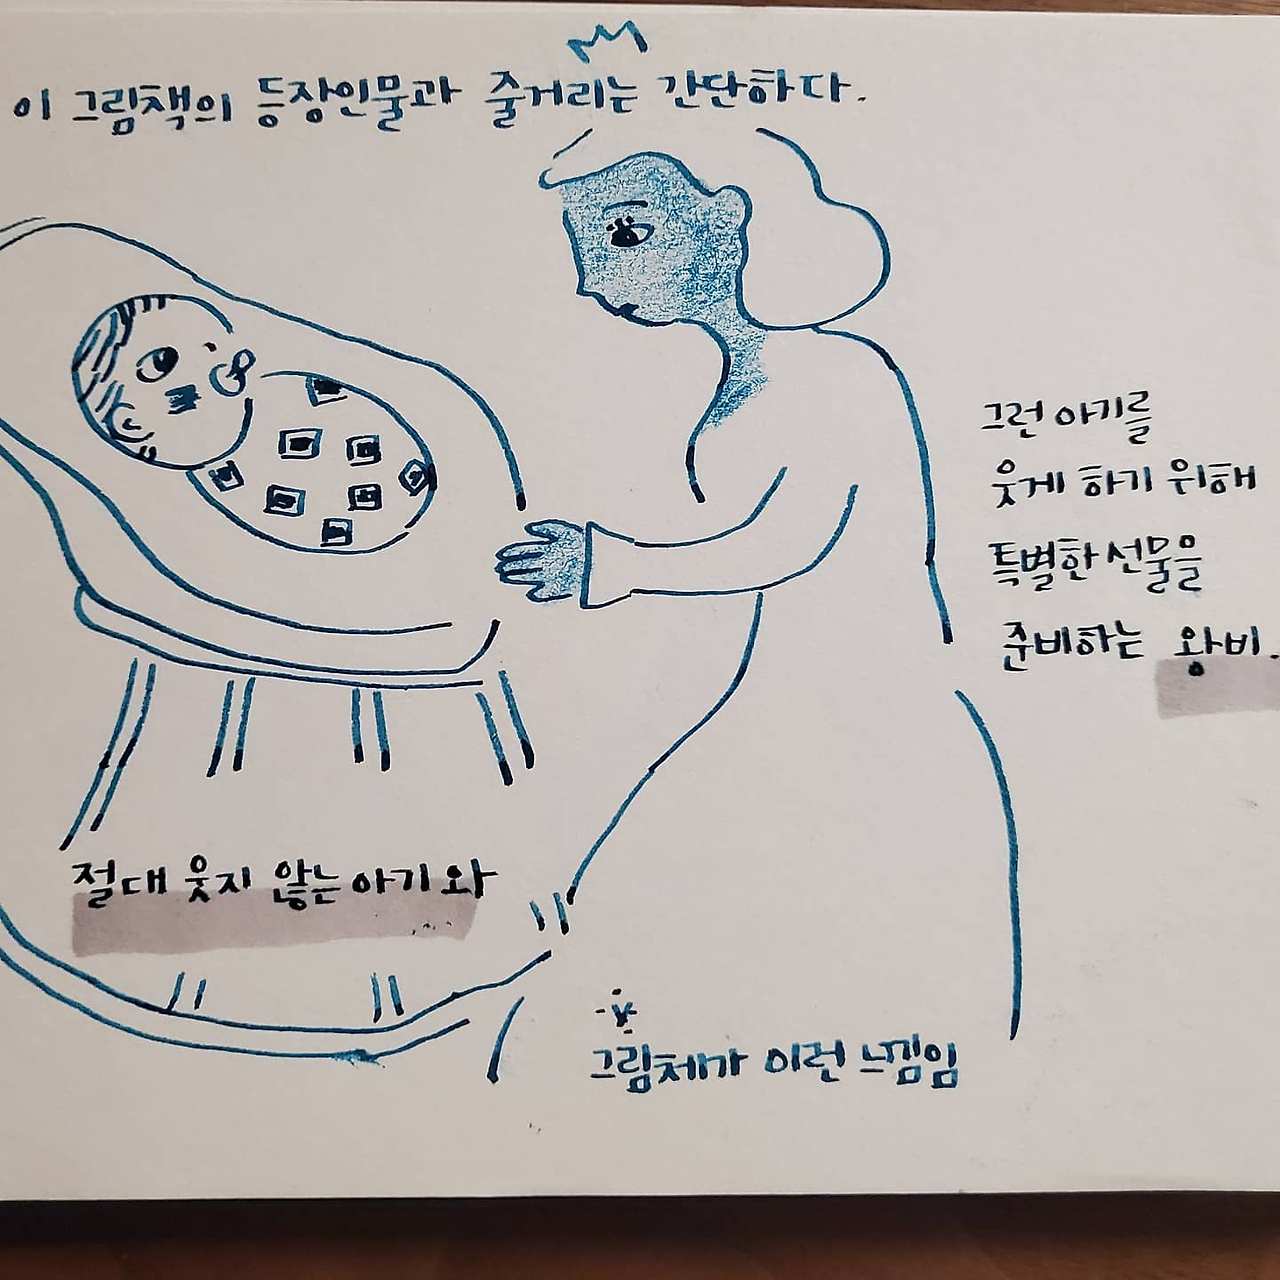 이 그림책의 등장인물과 줄거리는 간단하다.
절대 웃지 않는 아기와
그런 아기를
웃게 하기 위해
특별한 선물을
준비하는 왕비.
그림체가 이런 느낌임